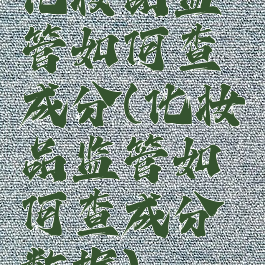 化妆品监
管如何查
成分(化妆
品监管如
何查成分
数据)